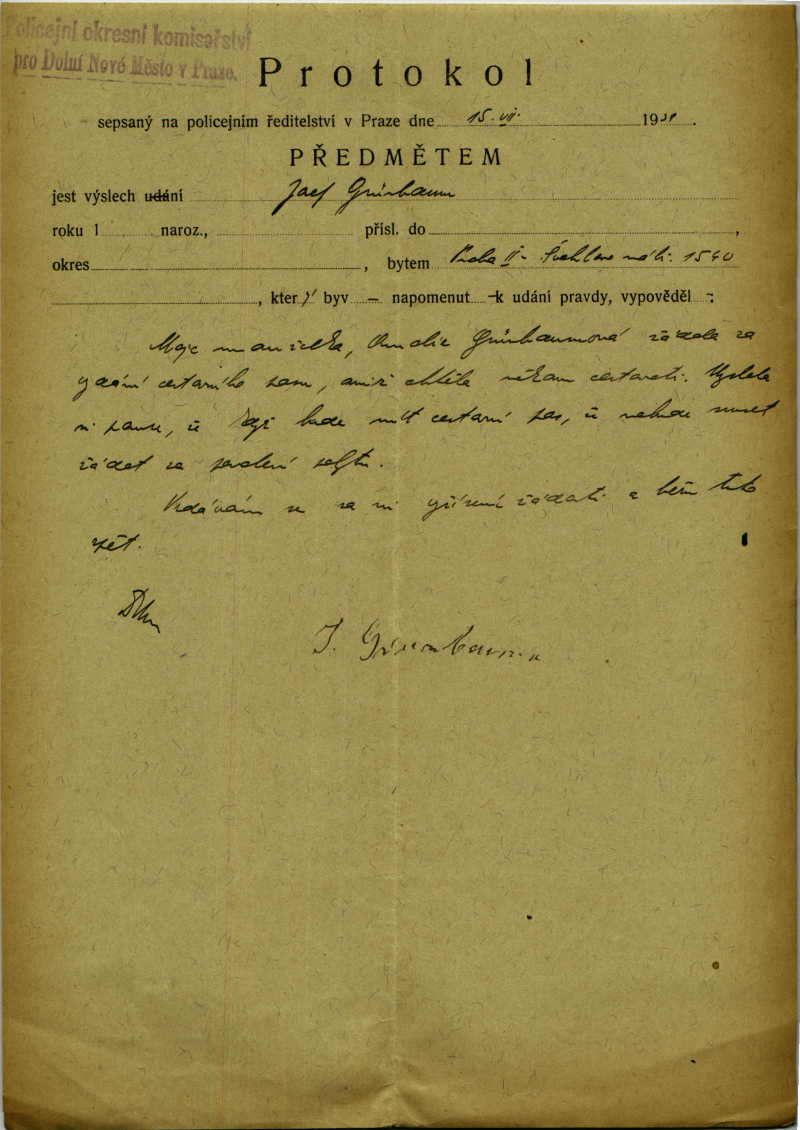 Policejní okresní komisařství
pro Dolní Nové Město v Praze.
Protokol
sepsaný na policejním ředitelství v Praze dne 15. VII. 19
PŘEDMĚTEM
jest výslech udání Josef Grünbaum
roku 1 naroz., přísl. do ,
okres , bytem Praha II- nábř. 1540
, který byv – napomenut – k udání pravdy, vypověděl :
Moje manželka, Amalie Grünbaumová žádala za
vydání cestovního pasu, aniž chtěla někam cestovati. Myslela
si pouze, že když bude mít cestovní pas, že nebude muset
žádat za povolení
Vzdávám se za ni vyřízení žádosti a beru tuto
zpět.
J. Grünbaum